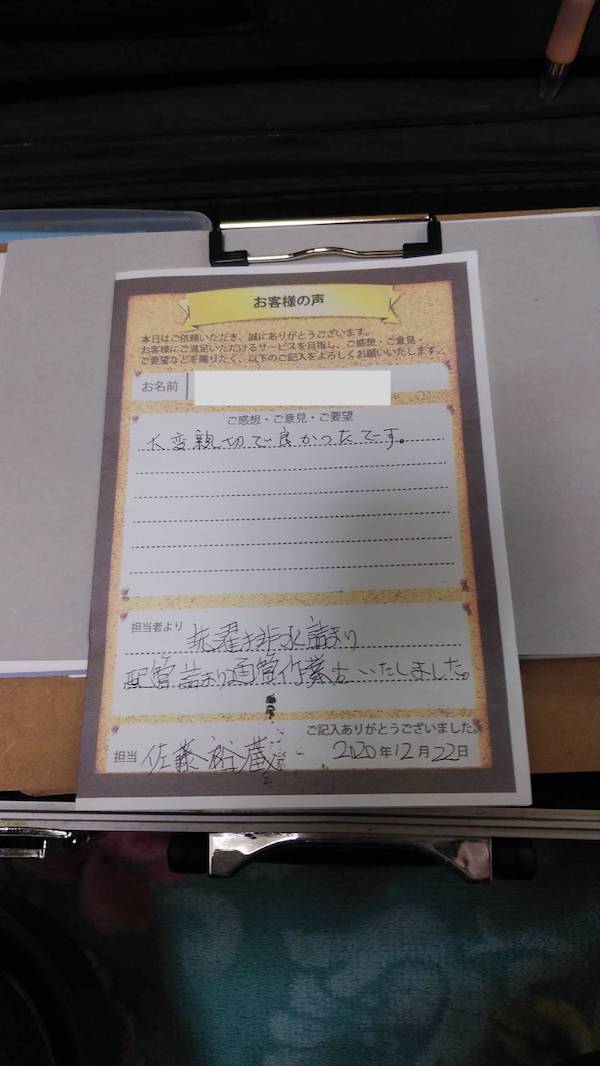 お客様の声
本日はご依頼いただき、誠にありがとうございます。
お客様にご満足いただけるサービスを目指し、ご感想・ご意見・
ご要望などを賜りたく、以下のご記入をよろしくお願いいたします。
お名前
ご感想・ご意見・ご要望
大変親切で良かったです。
担当者より 洗濯排水詰まり
配管詰まり通管作業をいたしました。
ご記入ありがとうございました
担当 佐藤裕蔵 2020年12月22日